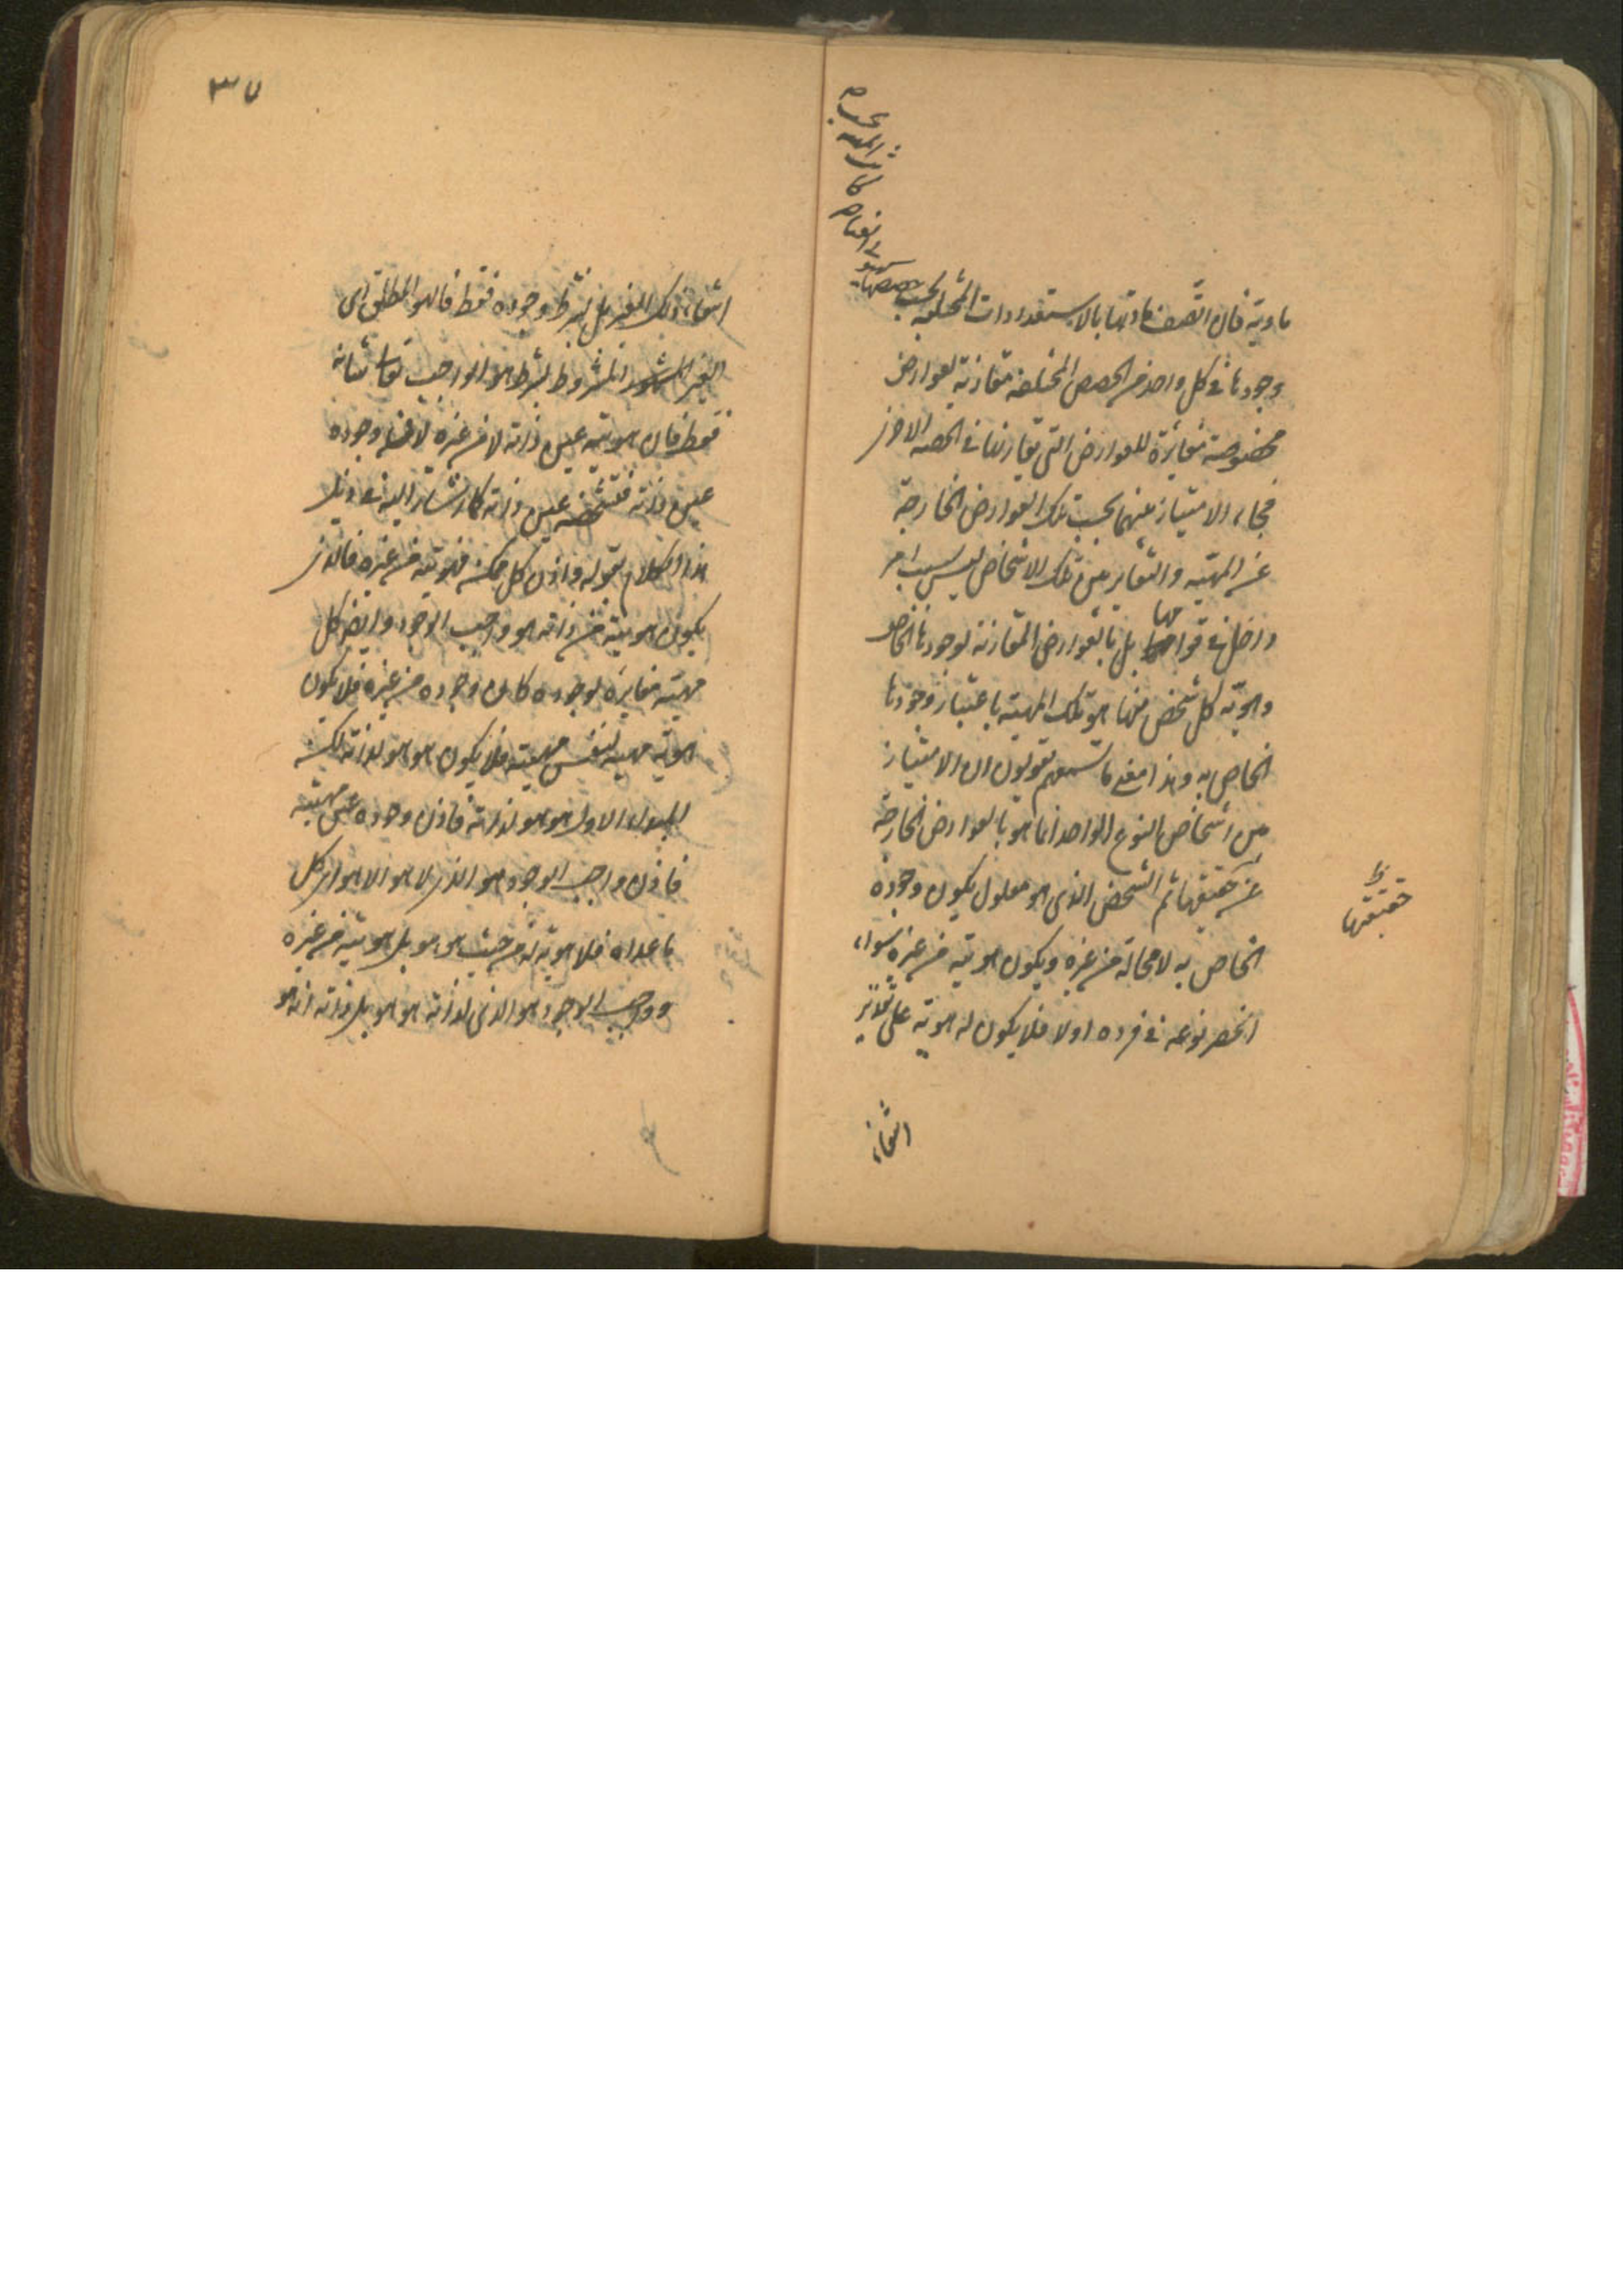 مادية فان اتصف مادتها بالاستعدادات المختلفة بحسب حصصها
وجودها فى كل واحد من الحصص المختلفة مقارنة لعوارض
مخصوصة مغايرة للعوارض التى تقارنها فى الحصه الاخرى
فجاء الامتياز بينهما بحسب تلك العوارض الخارجة
عن المهية والتغاير بين تلك الاشخاص ليس بسبب امر
داخل فى قوامها بل بالعوارض المقارنة لوجودها الخاص
وهوية كل شخص منها هو تلك المهية باعتبار وجودها
الخاص به وهذا معنى ما تسمعهم يقولون ان الامتياز
بين اشخاص النوع الواحد انما هو بالعوارض الخارجة
عن حقيقتها ثم الشخص الذى هو معلول يكون وجوده
الخاص به لا محالة من غيره ويكون هويته من غيره سواء
انحصر نوعه فى فرده اولا فلا يكون له هوية على تقدير
انتفاء
حقيقتها
ظ
٣٧
انتفاء ذلك الغير بل بشرط وجوده فقط فالهو المطلق اى
الغير المشروط بشرط هو الواجب تعالى شانه
فقط فان هويته عين ذاته لا من غيره وجوده
عين ذاته فتشخصه عين ذاته كما اشار اليه فى ذيل
هذا الكلام بقوله واذن كل ممكن فهويته من غيره فالذى
يكون هويته من ذاته هو واجب الوجود وايضا كل
مهيته مغايرة لوجوده كان وجوده من غيره فلا يكون
هويته مهيته لنفس مهيته فلا يكون هو هو لذاته لكن
المبدء الاول هو هو لذاته فاذن وجوده عين مهيته
فاذن واجب الوجود هو الذى لا هو الا هو اى كل
ما عداه فلا هوية له من حيث هو هو بل هويته من غيره
وواجب الوجود هو الذى لذاته هو هو بل ذاته انه هو